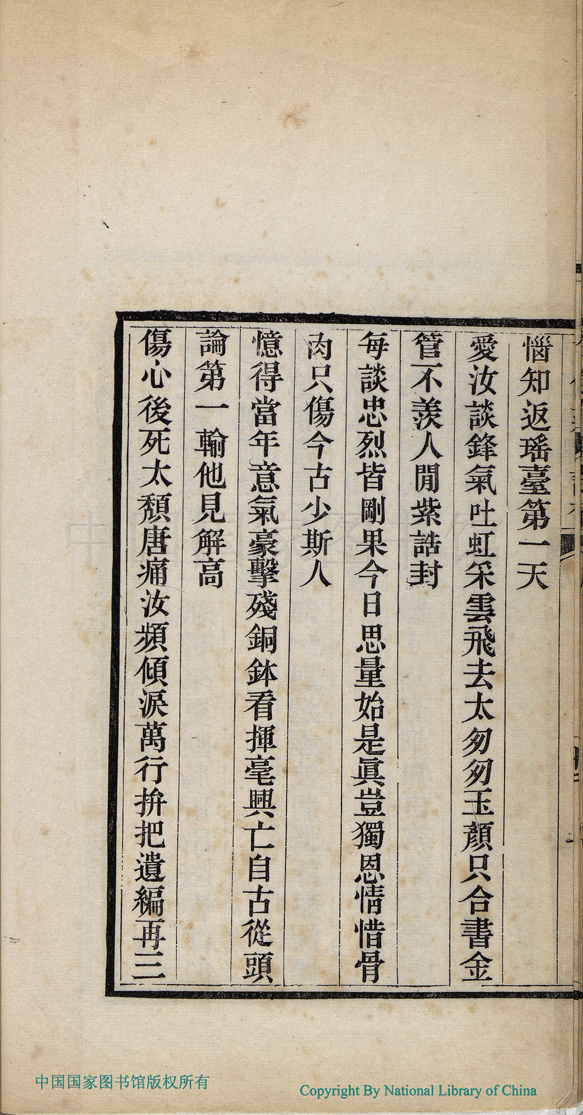 惱知返瑤臺第一天
愛汝談鋒氣吐虹采雲飛去太匆匆玉顏只合書金
管不羨人閒紫誥封
每談忠烈皆剛果今日思量始是眞豈獨恩情惜骨
肉只傷今古少斯人
憶得當年意氣豪擊殘銅鉢看揮毫興亡自古從頭
論第一輸他見解高
傷心後死太頹唐痛汝頻傾淚萬行拚把遺編再三
中国国家图书馆版权所有
Copyright By National Library of China